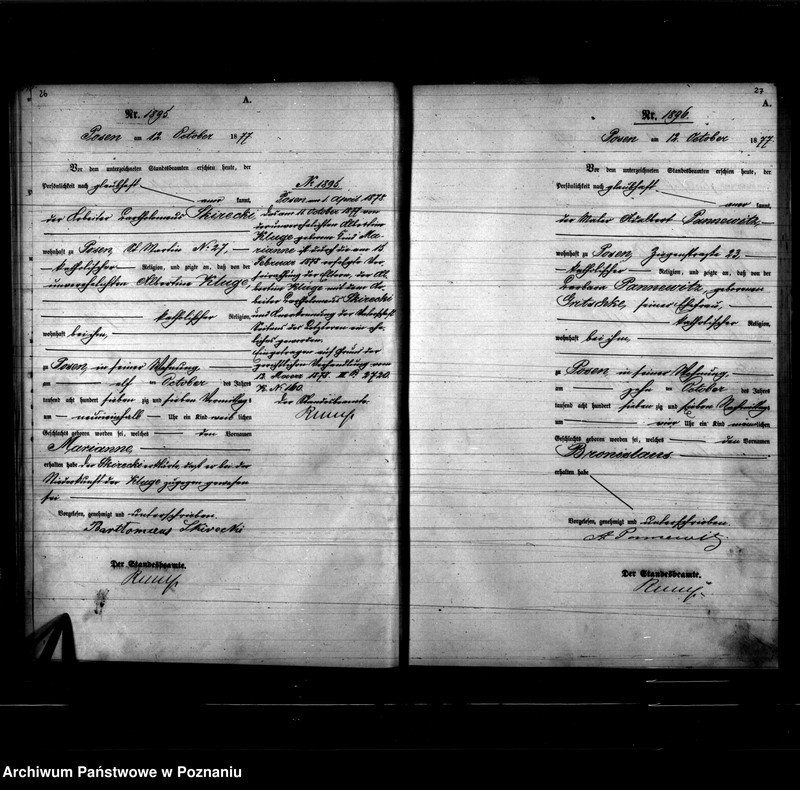 26
A.
Nr. 1895.
Posen am 12. October 1877
Vor dem unterzeichneten Standesbeamten erschien heute, der
Persönlichkeit nach glaubhaft
kannt,
der Arbeiter Bartholomaeus Skirecki
wohnhaft zu Posen, St. Martin No 27,
katholischer Religion, und zeigte an, daß von der
unverehelichten Albertine Kluge,
katholischer Religion,
wohnhaft bei ihm,
zu Posen, in seiner Wohnung,
am elf ten October des Jahres
tausend acht hundert sieben zig und sieben Vormittags
um neuneinhalb Uhr ein Kind weib lichen
Geschlechts geboren worden sei, welches den Vornamen
Marianne,
erhalten habe. Der Skirecki erklärte, daß er bei der
Niederkunft der Kluge zugegen gewesen
sei
Vorgelesen, genehmigt und unterschrieben
Bartlomaeus Skirecki
Der Standesbeamte.
No 1895.
Posen am 1. April 1878.
Das am 11. October 1877 von
der unverehelichten Albertine
Kluge geborene Kind Ma-
rianne ist durch die am 12.
Februar 1878 erfolgte Ver-
heirathung der Eltern, der Al-
bertine Kluge mit dem Ar-
beiter Bartholomaeus Skirecki
und Anerkennung der Vaterschaft
Seitens des Letzteren ein ehe-
liches geworden.
Eingetragen auf Grund der
gerichtlichen Verhandlung vom
13. Maerz 1878. 2720.
No 160.
Der Standesbeamte
27
A.
Nr. 1896.
Posen am 12. October 1877
Vor dem unterzeichneten Standesbeamten erschien heute, der
Persönlichkeit nach glaubhaft
kannt,
der Maler Adalbert Pannewitz
wohnhaft zu Posen, Ziegenstrasse 23
katholischer Religion, und zeigte an, daß von der
Barbara Pannewitz, geborenen
seiner Ehefrau,
katholischer Religion,
wohnhaft bei ihm,
zu Posen, in seiner Wohnung,
am zehn ten October des Jahres
tausend acht hundert sieben zig und sieben Nachmittags
um vier Uhr ein Kind maennlichen
Geschlechts geboren worden sei, welches den Vornamen
Bronislaus
erhalten habe
Vorgelesen, genehmigt und unterschrieben
A. Pannewitz
Der Standesbeamte.
Archiwum Państwowe w Poznaniu